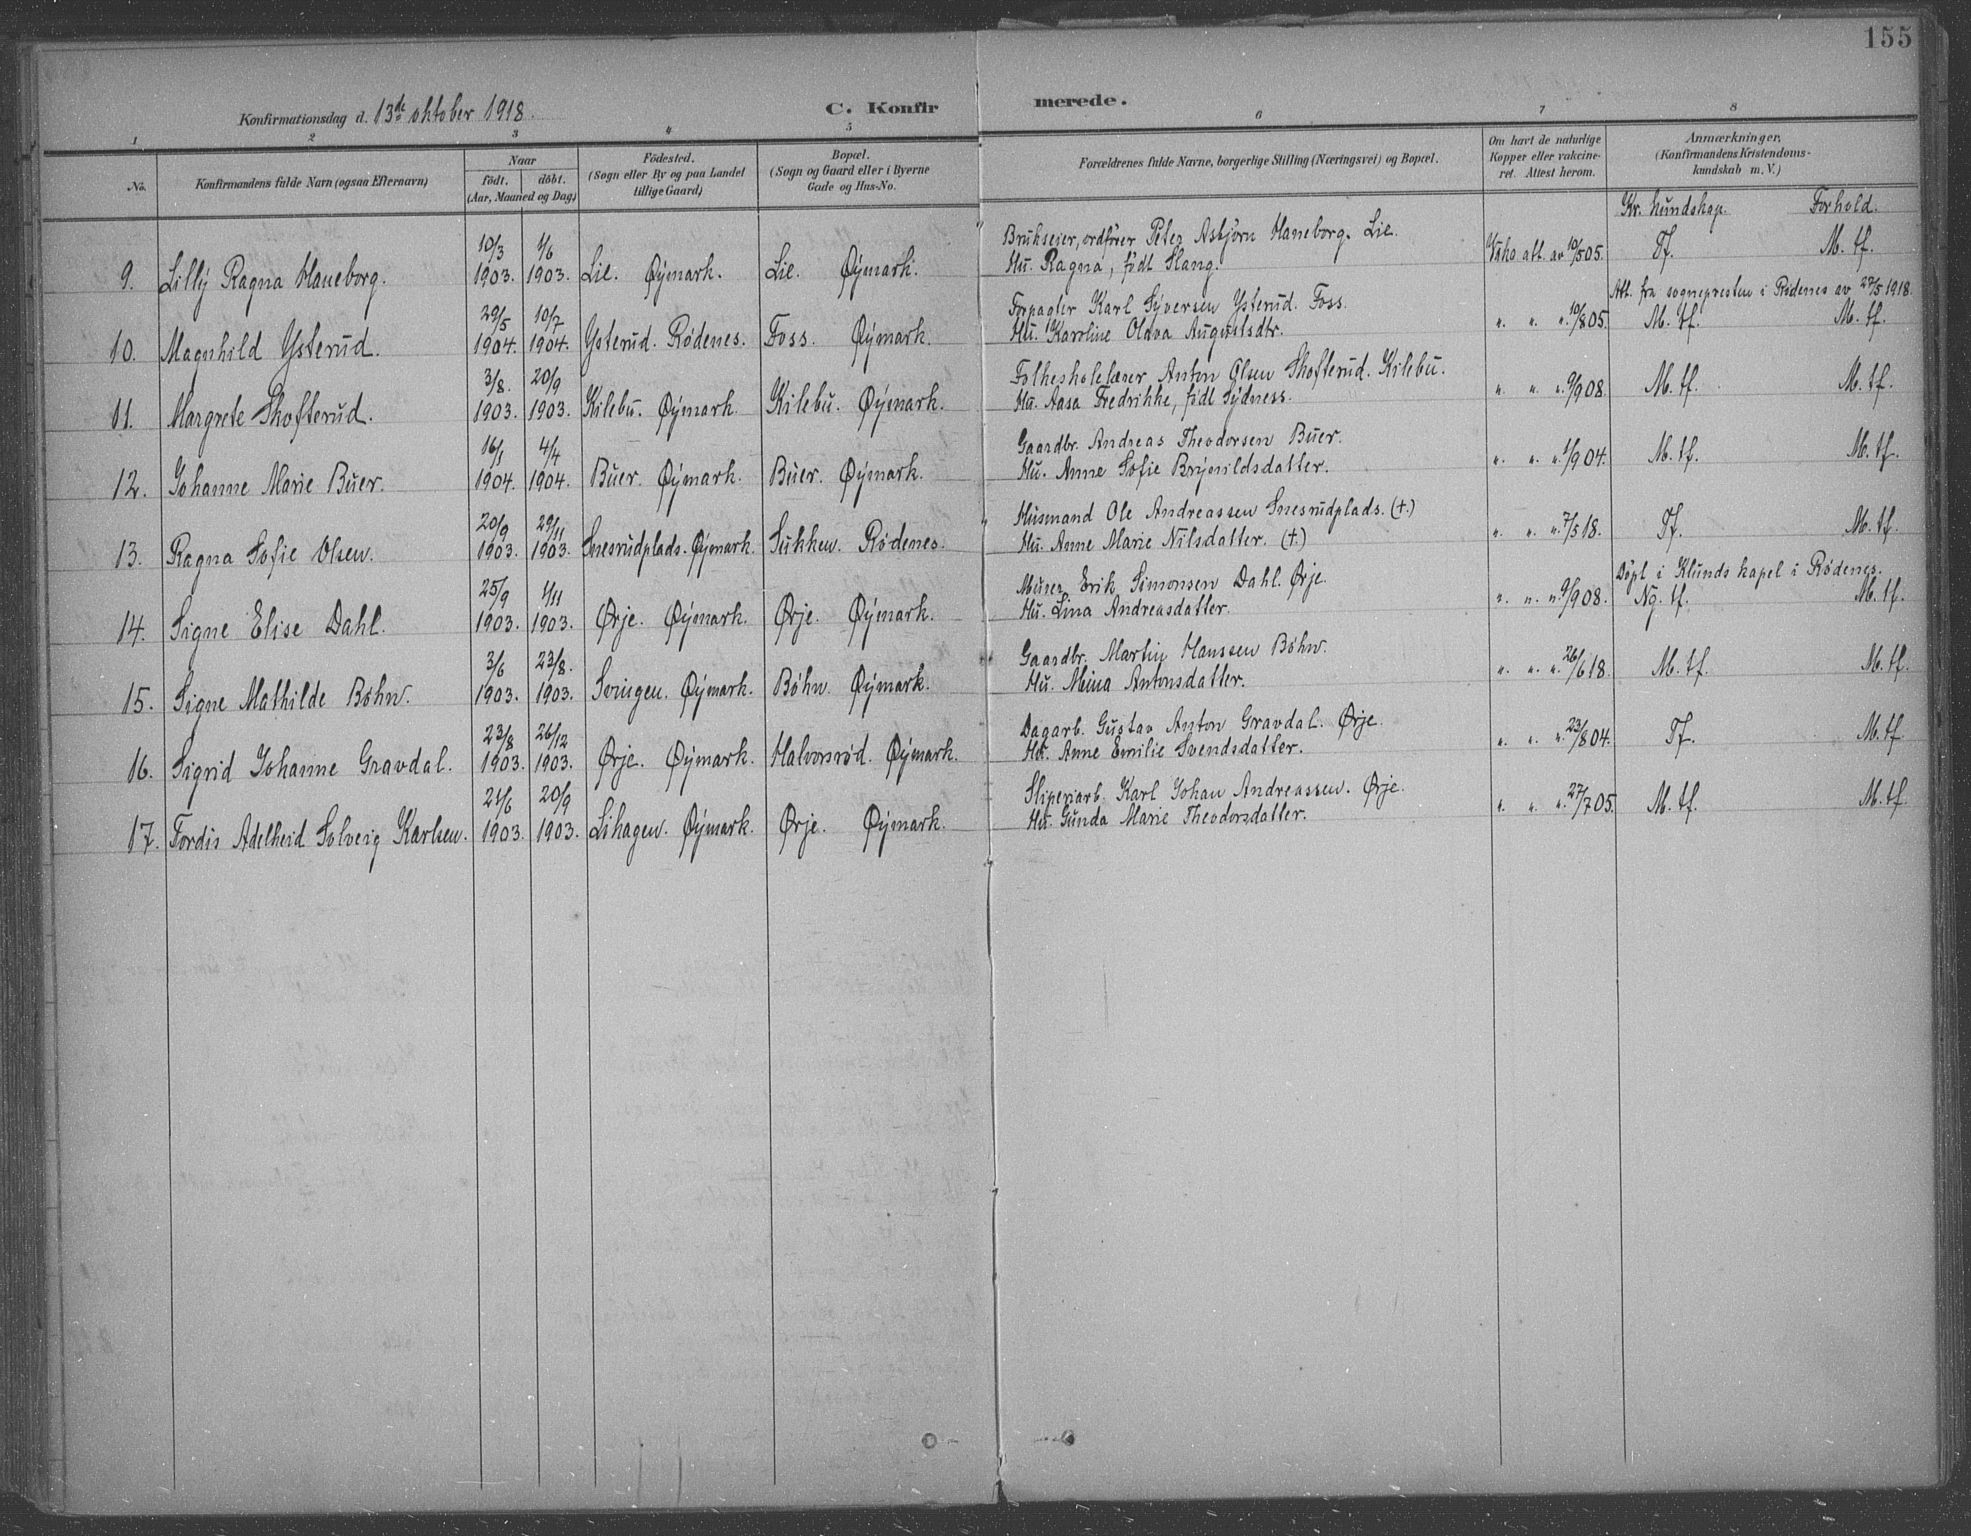 155
Konfirmationsdag d. 13de oktober 1918.
C. Konfirmerede.
1 2 3 4 5 6 7 8
No.
Konfirmandens fulde Navn (ogsaa Efternavn)
Naar
födt. döbt.
(Aar, Maaned og Dag)
Födested.
(Sogn eller By og paa Landet
tillige Gaard)
Bopæl.
(Sogn og Gaard eller i Byerne
Gade og Hus-No.
Forældrenes fulde Navne, borgerlige Stilling (Næringsvei) og Bopæl.
Om havt de naturlige
Kopper eller vakcine-
ret. Attest herom.
Anmærkninger,
(Konfirmandens Kristendoms-
kundskab m. V.)
Kr. kundskap. Forhold.
10/3 1/6 Brukseier, ordfører Peter Asbjørn Haneborg. Lie.
9. Lilly Ragna Haneborg. 1903. 1903. Lie. Øymark. Lie. Øymark. Hu. Ragna, født Slang. Vako att. av 10/5 05. Tf. M. tf.
Att. fra sognepresten i Rødenes av 27/5 1918.
29/5 10/7 Forpagter Karl Syversen Ysterud. Foss.
10. Magnhild Ysterud. 1904. 1904. Ysterud. Rødenes. Foss. Øymark. Hu. Karoline Olava Augustsdtr. " " " 10/8 05. M. tf. M. tf.
3/8. 20/9 Folkeskolelærer Anton Olsen Skofterud. Kilebu.
11. Margrete Skofterud. 1903. 1903. Kilebu. Øymark. Kilebu. Øymark. Hu. Aasa Fredrikke, født Sydness. " " " 9/9 08. M. tf. M. tf.
16/1 4/4 Gaardbr. Andreas Theodorsen Buer.
12. Johanne Marie Buer. 1904. 1904. Buer. Øymark. Buer. Øymark. Hu. Anne Sofie Brynildsdatter. " " " 1/9 04. M. tf. M. tf.
20/9 29/11 Husmand Ole Andreassen Snesrudplads. (†.)
13. Ragna Sofie Olsen. 1903. 1903. Snesrudplads. Øymark. Sukken. Rødenes. Hu. Anne Marie Nilsdatter. (†) " " " 7/5 18. Tf. M. tf.
Døpt i Klunds kapel i Rødenes.
25/9 1/11 Murer Erik Simonsen Dahl. Ørje.
14. Signe Elise Dahl. 1903. 1903. Ørje. Øymark. Ørje. Øymark. Hu. Lina Andreasdatter. " " " 9/9 08. Ng. tf. M. tf.
3/6 23/8. Gaardbr. Martin Hanssen Bøhn.
15. Signe Mathilde Bøhn. 1903. 1903. Svingen. Øymark. Bøhn. Øymark. Hu. Mina Antonsdatter. " " " 26/6 18. M. tf. M. tf.
23/8 26/12 Dagarb. Gustav Anton Gravdal. Ørje.
16. Sigrid Johanne Gravdal. 1903. 1903. Ørje. Øymark. Halvorsrød. Øymark. Hu. Anne Emilie Svendsdatter. " " " 23/8 04. Tf. M. tf.
21/6 20/9 Sliperiarb. Karl Johan Andreassen. Ørje.
17. Tordis Adelheid Solveig Karlsen. 1903. 1903. Lihagen. Øymark. Ørje. Øymark. Hu. Gunda Marie Theodorsdatter. " " " 27/7 05. M. tf. M. tf.